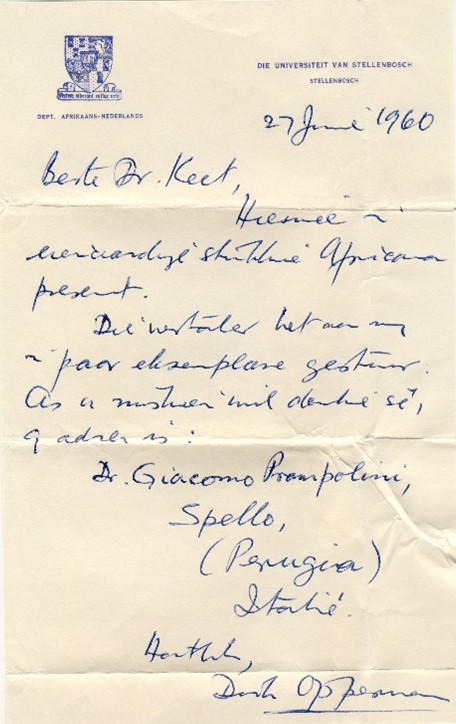 DIE UNIVERSITEIT VAN STELLENBOSCH
STELLENBOSCH
DEPT. AFRIKAANS-NEDERLANDS
27 Junie 1960
Beste Dr. Keet,
Hiermee 'n
eienaardige stukkie Africana
present.
Die vertaler het aan my
'n paar eksemplare gestuur.
As u miskien wil dankie sê,
sy adres is:
Dr. Giacomo Prampolini,
Spello,
(Perugia)
Italië.
Hartlik,
Dirk Opperman